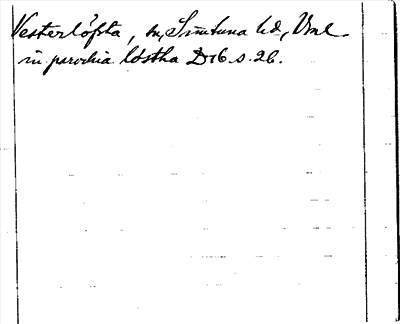 Vesterlöfsta, sn, Simtuna hd, Upl.
in parochia löstha D16 s. 26.